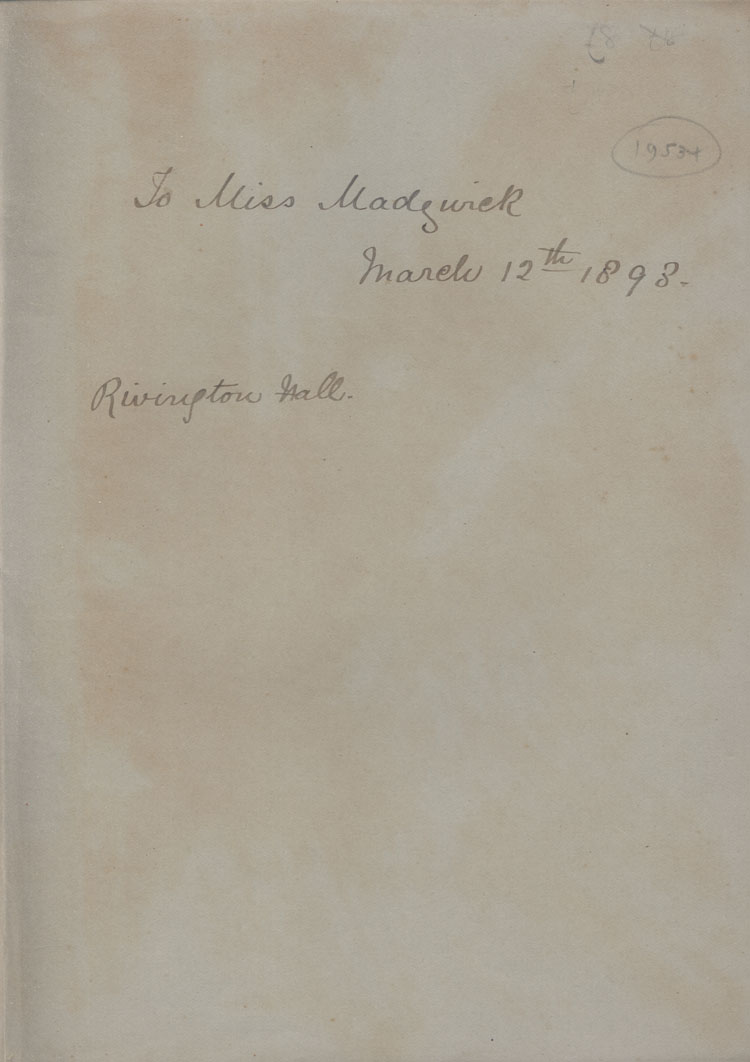 To Miss Madgwick
March 12th 1898.
Rivington Hall.